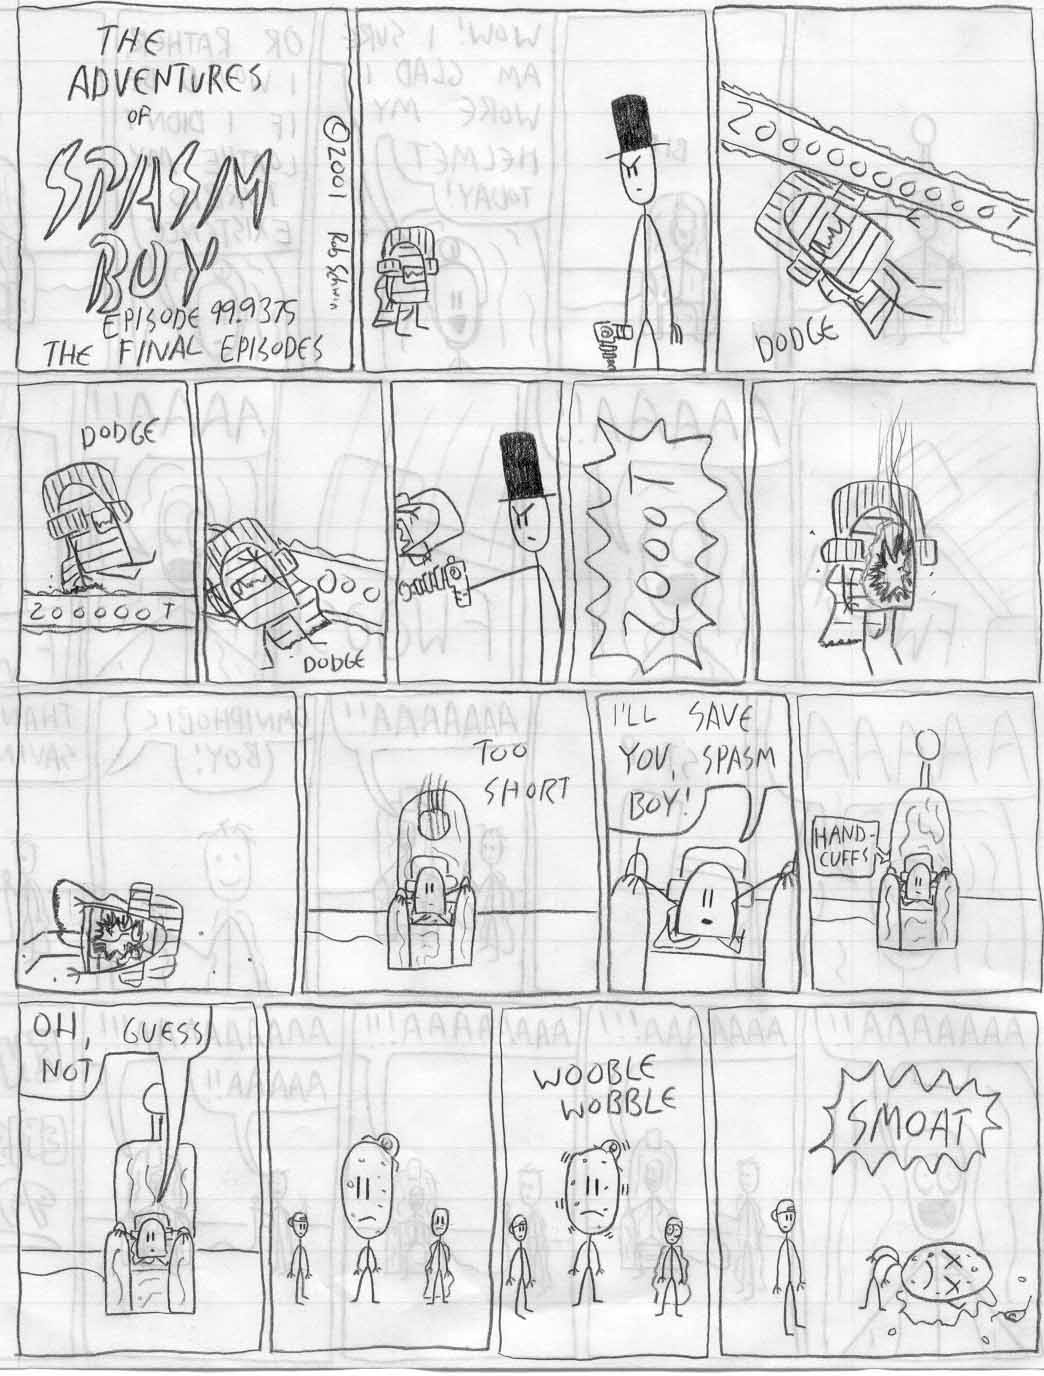 THE
ADVENTURES
OF
SPASM
BOY
EPISODE 99.9375
THE FINAL EPISODES
©2001 Rob Schwin
2000000000T
DODGE
DODGE
200000T
000
DODGE
2001
TOO
SHORT
I'LL SAVE
YOU, SPASM
BOY!
HAND-
CUFFS
OH,
NOT
GUESS
WOOBLE
WOBBLE
SMOAT